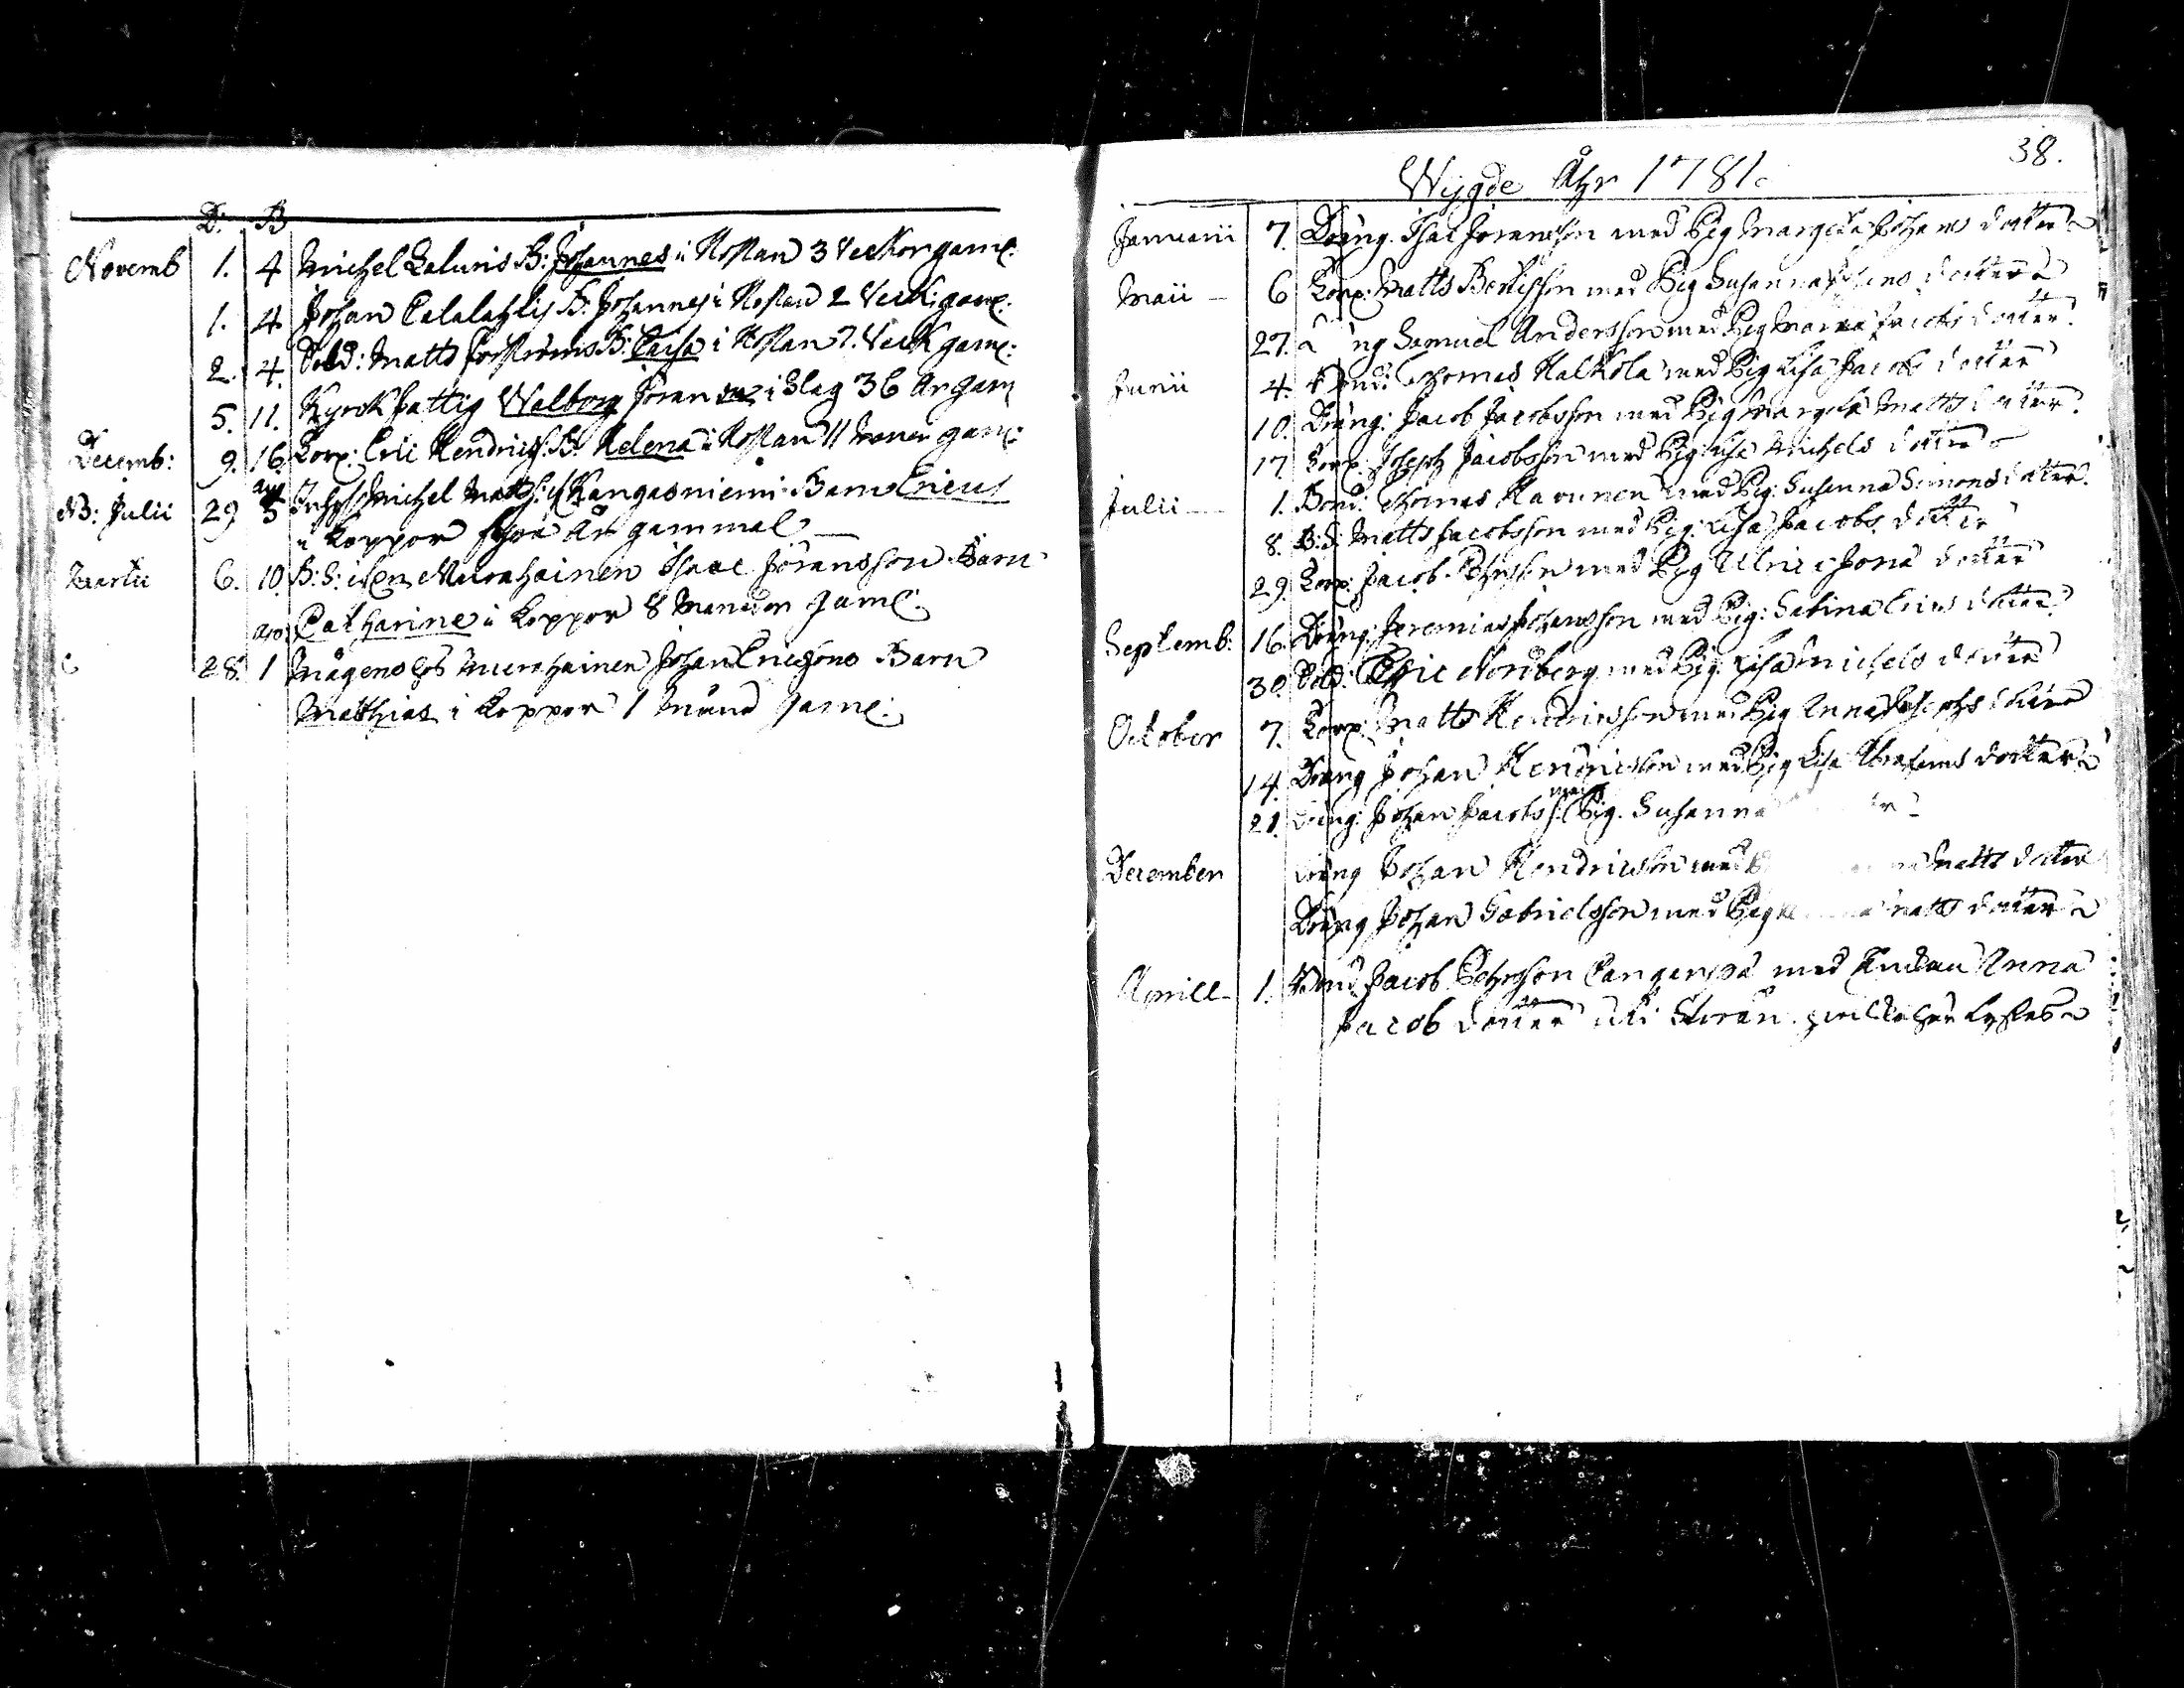 D: B
Novemb 1. 4 Michel Laluris B: Johannes i Hostan 3 Veckor gaml:
1. 4 Johan Palalahlis B. Johannes i Hostan 2 Veck: gaml:
2. 4. Sold: Matts B: Caisa i Hostan 7. Veck gaml:
5. 11. Kyrck fattig Walborg Jöran i Slag 36 År gam
Decemb: 9. 16. Torp: Eric Hendrics: B. Helena i Hostan 11 Måner gaml:
aug
NB: Julii 29 5 Inhys Michel Matts: Kangasniemi Barn Ericus
i Koppor fyra År gammal
Martii 6. 10. B: S: Murahainen Isaac Jöransson Barn
Catharine i Koppor 8 Månader gaml:
28. 1 Mågens Murahainen Johan Ericsons Barn
Matthias i Koppor 1 Månad gaml:
38.
Wijgde Åhr 1781.
Januarii 7. Dräng. Isac Jöransson med Pig Margeta Johans dotter
Maii 6 Torp: Matts Bertisson med Pig Susanna dotter
27. ng Samuel Andersson med Pig Maria Jacobs dotter
Junii 4. Bond: Thomas Kalkola med Pig Lisa Jacobs dotter
10. Dräng: Jacob Jacobsson med Pig Margeta Matts dotter
17. Torp. Joseph Jacobsson med Pig Lisa Michels dotter
Julii 1. Bond: Thomas Kavunen med Pig: Susanna Simons dotter.
8. B:S: Matts Jacobsson med Pig: Lisa Jacobs dotter
29. Torp: Jacob med Pig Ulric dotter
Septemb: 16. Dräng: Jeremias Johansson med Pig: Sabina Erics dotter
30. Sold: Eric Nordberg med Pig. Lisa Michels dotter
October 7. Torp: Matts Hendricsson med Pig Anna Josephs dotter
14. Dräng Johan Hendricsson med Pig Lisa Abrahams dotter
21. Dräng: Johan Jacobss: med Pig. Susanna
December Dräng Johan Hendricsson med Matts dotter
Dräng Johan Gabrielsson med Pig Matts dotter
Aprill 1. Bond Jacob med Enkan Anna
Jacob dotter uti